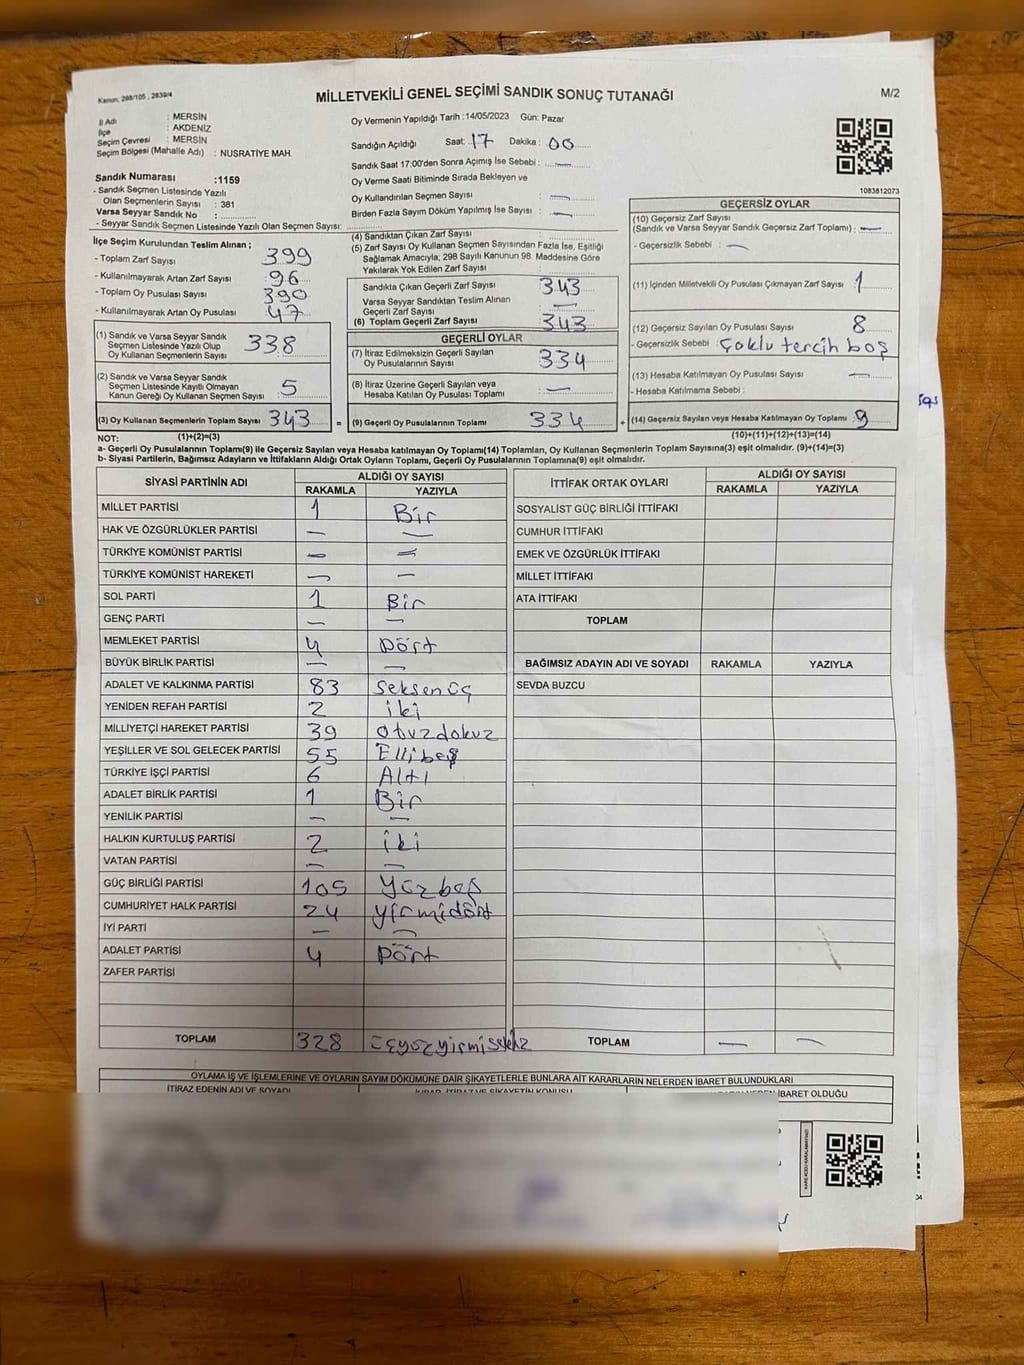 Kanun; 298/105 , 2839/4
MİLLETVEKİLİ GENEL SEÇİMİ SANDIK SONUÇ TUTANAĞI
M/2
İl Adı : MERSİN
İlçe : AKDENİZ
Seçim Çevresi : MERSİN
Seçim Bölgesi (Mahalle Adı) : NUSRATİYE MAH.
Sandık Numarası :1159
- Sandık Seçmen Listesinde Yazılı
Olan Seçmenlerin Sayısı : 381
Varsa Seyyar Sandık No :
- Seyyar Sandık Seçmen Listesinde Yazılı Olan Seçmen Sayısı:
Oy Vermenin Yapıldığı Tarih :14/05/2023 Gün: Pazar
Sandığın Açıldığı Saat: 17 Dakika : 00
Sandık Saat 17:00'den Sonra Açımış İse Sebebi : —
Oy Verme Saati Bitiminde Sırada Bekleyen ve
Oy Kullandırılan Seçmen Sayısı : —
Birden Fazla Sayım Döküm Yapılmış İse Sayısı : —
1083812073
İlçe Seçim Kurulundan Teslim Alınan ;
- Toplam Zarf Sayısı 399
- Kullanılmayarak Artan Zarf Sayısı 96
- Toplam Oy Pusulası Sayısı 390
- Kullanılmayarak Artan Oy Pusulası 47
(1) Sandık ve Varsa Seyyar Sandık
Seçmen Listesinde Yazılı Olup
Oy Kullanan Seçmenlerin Sayısı 338
(2) Sandık ve Varsa Seyyar Sandık
Seçmen Listesinde Kayıtlı Olmayan
Kanun Gereği Oy Kullanan Seçmen Sayısı 5
(3) Oy Kullanan Seçmenlerin Toplam Sayısı 343
(4) Sandıktan Çıkan Zarf Sayısı :
(5) Zarf Sayısı Oy Kullanan Seçmen Sayısından Fazla İse, Eşitliği
Sağlamak Amacıyla; 298 Sayılı Kanunun 98. Maddesine Göre
Yakılarak Yok Edilen Zarf Sayısı :
Sandıkta Çıkan Geçerli Zarf Sayısı 343
Varsa Seyyar Sandıktan Teslim Alınan
Geçerli Zarf Sayısı —
(6) Toplam Geçerli Zarf Sayısı 343
GEÇERLİ OYLAR
(7) İtiraz Edilmeksizin Geçerli Sayılan
Oy Pusulalarının Sayısı 334
(8) İtiraz Üzerine Geçerli Sayılan veya
Hesaba Katılan Oy Pusulası Toplamı —
= (9) Geçerli Oy Pusulalarının Toplamı 334 +
GEÇERSİZ OYLAR
(10) Geçersiz Zarf Sayısı
(Sandık ve Varsa Seyyar Sandık Geçersiz Zarf Toplamı) : —
- Geçersizlik Sebebi : —
(11) İçinden Milletvekili Oy Pusulası Çıkmayan Zarf Sayısı 1
(12) Geçersiz Sayılan Oy Pusulası Sayısı 8
- Geçersizlik Sebebi : Çoklu tercih boş
(13) Hesaba Katılmayan Oy Pusulası Sayısı —
- Hesaba Katılmama Sebebi :
(14) Geçersiz Sayılan veya Hesaba Katılmayan Oy Toplamı 9
NOT: (1)+(2)=(3)
(10)+(11)+(12)+(13)=(14)
a- Geçerli Oy Pusulalarının Toplamı(9) ile Geçersiz Sayılan veya Hesaba katılmayan Oy Toplamı(14) Toplamları, Oy Kullanan Seçmenlerin Toplam Sayısına(3) eşit olmalıdır. (9)+(14)=(3)
b- Siyasi Partilerin, Bağımsız Adayların ve İttifakların Aldığı Ortak Oyların Toplamı, Geçerli Oy Pusulalarının Toplamına(9) eşit olmalıdır.
SİYASİ PARTİNİN ADI ALDIĞI OY SAYISI
RAKAMLA YAZIYLA
MİLLET PARTİSİ 1 Bir
HAK VE ÖZGÜRLÜKLER PARTİSİ — —
TÜRKİYE KOMÜNİST PARTİSİ — —
TÜRKİYE KOMÜNİST HAREKETİ — —
SOL PARTİ 1 Bir
GENÇ PARTİ — —
MEMLEKET PARTİSİ 4 Dört
BÜYÜK BİRLİK PARTİSİ — —
ADALET VE KALKINMA PARTİSİ 83 Seksenüç
YENİDEN REFAH PARTİSİ 2 iki
MİLLİYETÇİ HAREKET PARTİSİ 39 otuzdokuz
YEŞİLLER VE SOL GELECEK PARTİSİ 55 Ellibeş
TÜRKİYE İŞÇİ PARTİSİ 6 Altı
ADALET BİRLİK PARTİSİ 1 Bir
YENİLİK PARTİSİ — —
HALKIN KURTULUŞ PARTİSİ 2 iki
VATAN PARTİSİ — —
GÜÇ BİRLİĞİ PARTİSİ 105 Yüzbeş
CUMHURİYET HALK PARTİSİ 24 yirmidört
İYİ PARTİ — —
ADALET PARTİSİ 4 Dört
ZAFER PARTİSİ
TOPLAM 328
İTTİFAK ORTAK OYLARI ALDIĞI OY SAYISI
RAKAMLA YAZIYLA
SOSYALİST GÜÇ BİRLİĞİ İTTİFAKI
CUMHUR İTTİFAKI
EMEK VE ÖZGÜRLÜK İTTİFAKI
MİLLET İTTİFAKI
ATA İTTİFAKI
TOPLAM
BAĞIMSIZ ADAYIN ADI VE SOYADI RAKAMLA YAZIYLA
SEVDA BUZCU
TOPLAM — —
OYLAMA İŞ VE İŞLEMLERİNE VE OYLARIN SAYIM DÖKÜMÜNE DAİR ŞİKAYETLERLE BUNLARA AİT KARARLARIN NELERDEN İBARET BULUNDUKLARI
İTİRAZ EDENİN ADI VE SOYADI
İBARET OLDUĞU